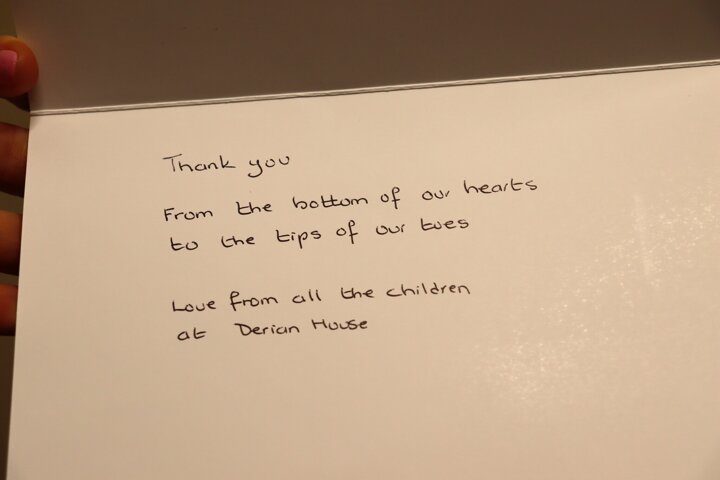 Thank you
From the bottom of our hearts
to the tips of our toes
Love from all the children
at Derian House